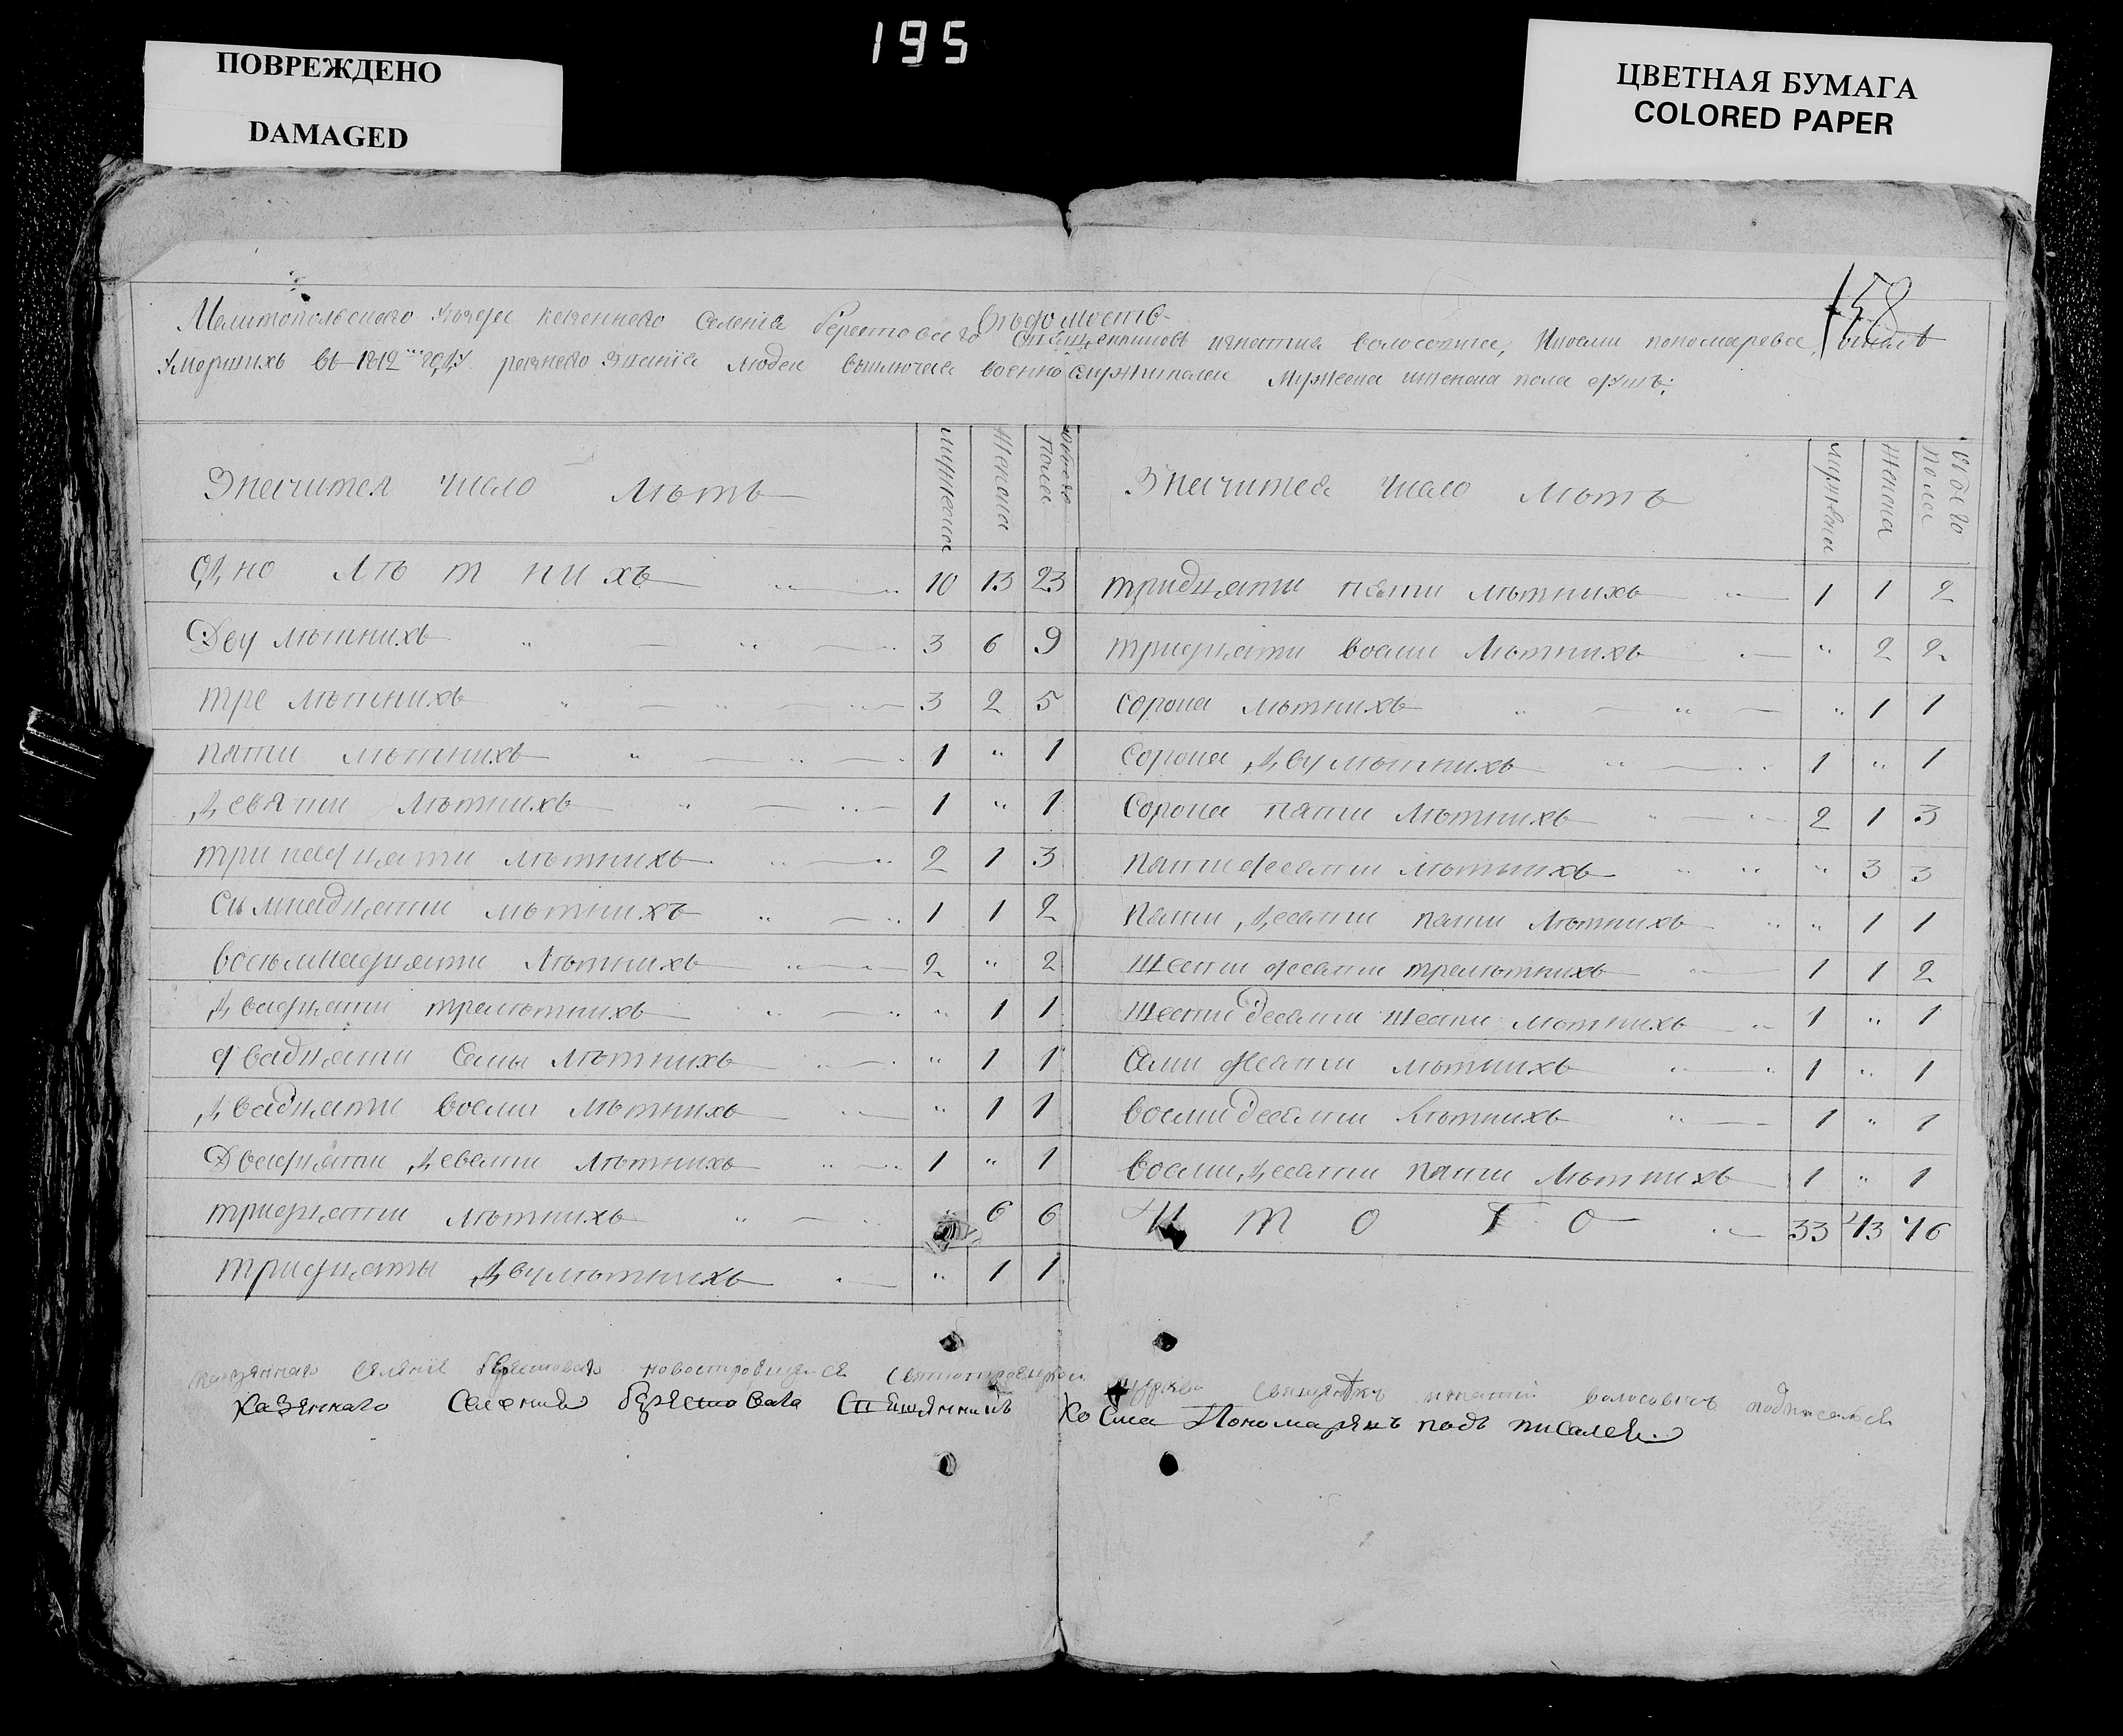 195
ПОВРЕЖДЕНО
DAMAGED
ЦВЕТНАЯ БУМАГА
COLORED PAPER
158
Вѣдомость
Мелитопольского уезда казенного селенія берестоваго священниковъ игнатия волосовича, Икосми пономарева,
Умершихъ въ 1812 году разнаго званія людей выключая военнослужителей мужеска иженска пола душъ:
Значится число лѣтъ мужеска женска обоего пола
Одно лѣтнихъ 10 13 23
Дву лѣтнихъ 3 6 9
тре лѣтнихъ 3 2 5
пяти лѣтнихъ 1 " 1
девяти лѣтнихъ 1 " 1
тринадцяти лѣтнихъ 2 1 3
сѣмнадцяти лѣтнихъ 1 1 2
восьмнадцяти лѣтнихъ 2 " 2
двадцяти трелѣтнихъ " 1 1
двадцяти семы лѣтнихъ " 1 1
двадцяти восми лѣтнихъ " 1 1
Двадцяти девяти лѣтнихъ 1 " 1
тридцяти лѣтнихъ " 6 6
тридцяты двулѣтнихъ " 1 1
Значится число лѣтъ мужеска женска обоего пола
тридцяти пяти лѣтнихъ 1 1 2
тридцяти восми лѣтнихъ " 2 2
сорока лѣтнихъ " 1 1
сорока двулѣтнихъ 1 " 1
сорока пяти лѣтнихъ 2 1 3
пятидесяти лѣтнихъ " 3 3
пяти десяти пяти лѣтнихъ " 1 1
шести десяти трелѣтнихъ 1 1 2
шести десяти шести лѣтнихъ 1 " 1
семи десяти лѣтнихъ 1 " 1
восми десяти лѣтнихъ 1 " 1
восми десяти пяти лѣтнихъ 1 " 1
И т о г о 33 43 76
казеннаго селенія берестовага новостроящейся святотроицкой церкви священникъ игнатій волосовичъ подписался
Казеннаго Селения берестовага Священникъ Косма Пономаревъ подъ писалея